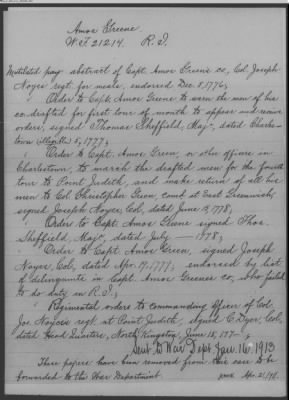 Amos Greene
W.F. 21214. R.I.
Mutilated pay abstract of Capt. Amos Greene's co, Col. Joseph
Noyes' regt. for meals, endorsed Dec. 8, 1776;
Order to Capt. Amos Greene to warn the men of his
co. drafted for first tour of month to appear and receive
orders, signed Thomas Sheffield, Maj., dated Charles-
town (illegible) 5, 1777;
Order to Capt. Amos Green, or other officer in
Charlestown, to march the drafted men for the fourth
tour to Point Judith, and make return of all his
men to Col. Christopher Green, comd. at East Greenwich,
signed Joseph Noyes, Col., dated June 19, 1778;
Order to Capt. Amos Greene signed Thos.
Sheffield, Maj., dated July 1778;
Order to Capt. Amos Green, signed Joseph
Noyes, Col., dated Apr. 19, 1777; endorsed by list
of delinquents in Capt. Amos Greenes co., who failed
to do duty in R.I.;
Regimental orders to commanding officer of Col.
Joe Noyes's regt. at Point Judith, signed C. Dyer, Col.,
dated Head Quarters, North Kingston, June 15, 177-;
Sent to War Dept. Jan. 16, 1913
These papers have been removed from this case to be
forwarded to the War Department.